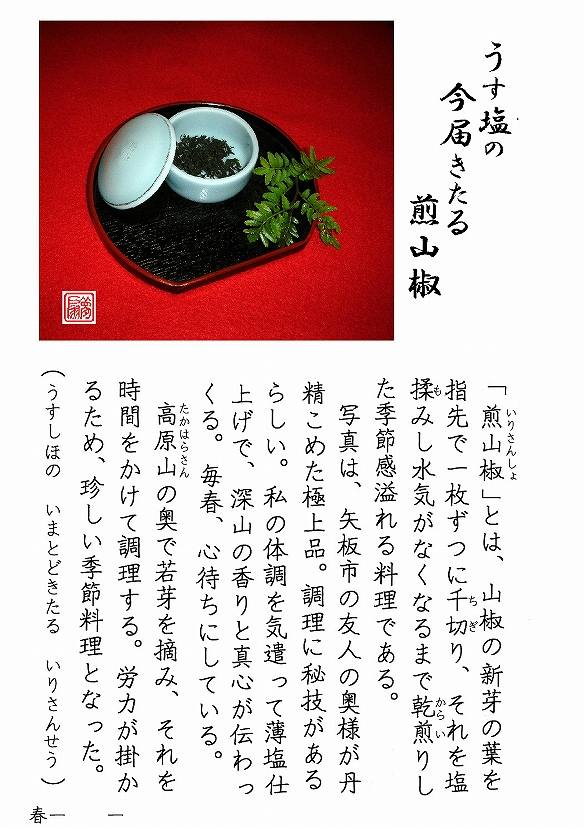 うす塩の
今届きたる
煎山椒
「煎山椒」とは、山椒の新芽の葉を
いりさんしょ
指先で一枚ずつに千切り、それを塩
ちぎ
揉みし水気がなくなるまで乾煎りし
も
からい
た季節感溢れる料理である。
写真は、矢板市の友人の奥様が丹
精こめた極上品。調理に秘技がある
らしい。私の体調を気遣って薄塩仕
上げで、深山の香りと真心が伝わっ
くる。毎春、心待ちにしている。
高原山の奥で若芽を摘み、それを
たかはらさん
時間をかけて調理する。労力が掛か
るため、珍しい季節料理となった。
(うすしほの　いまとどきたる　いりさんせう)
春一　一